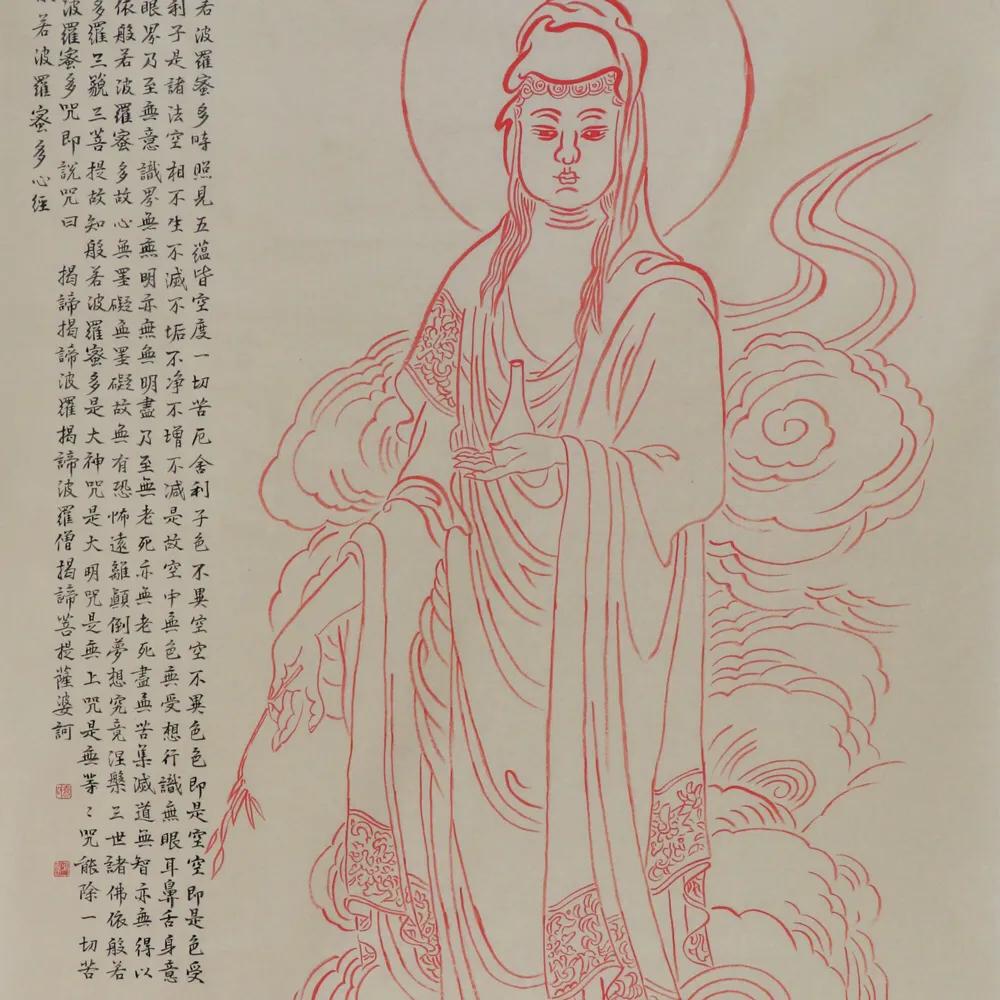 若波羅蜜多時照見五蘊皆空度一切苦厄舍利子色不異空空不異色色即是空空即是色受
利子是諸法空相不生不滅不垢不净不增不减是故空中無色無受想行識無眼耳鼻舌身意
眼界乃至無意識界無無明亦無無明盡乃至無老死亦無老死盡無苦集滅道無智亦無得以
依般若波羅蜜多故心無罣礙無罣礙故無有恐怖遠離顛倒夢想究竟涅槃三世諸佛依般若
多羅三藐三菩提故知般若波羅蜜多是大神咒是大明咒是無上咒是無等〻咒能除一切苦
波羅蜜多咒即說咒曰 揭諦揭諦波羅揭諦波羅僧揭諦菩提薩婆訶
若波羅蜜多心經